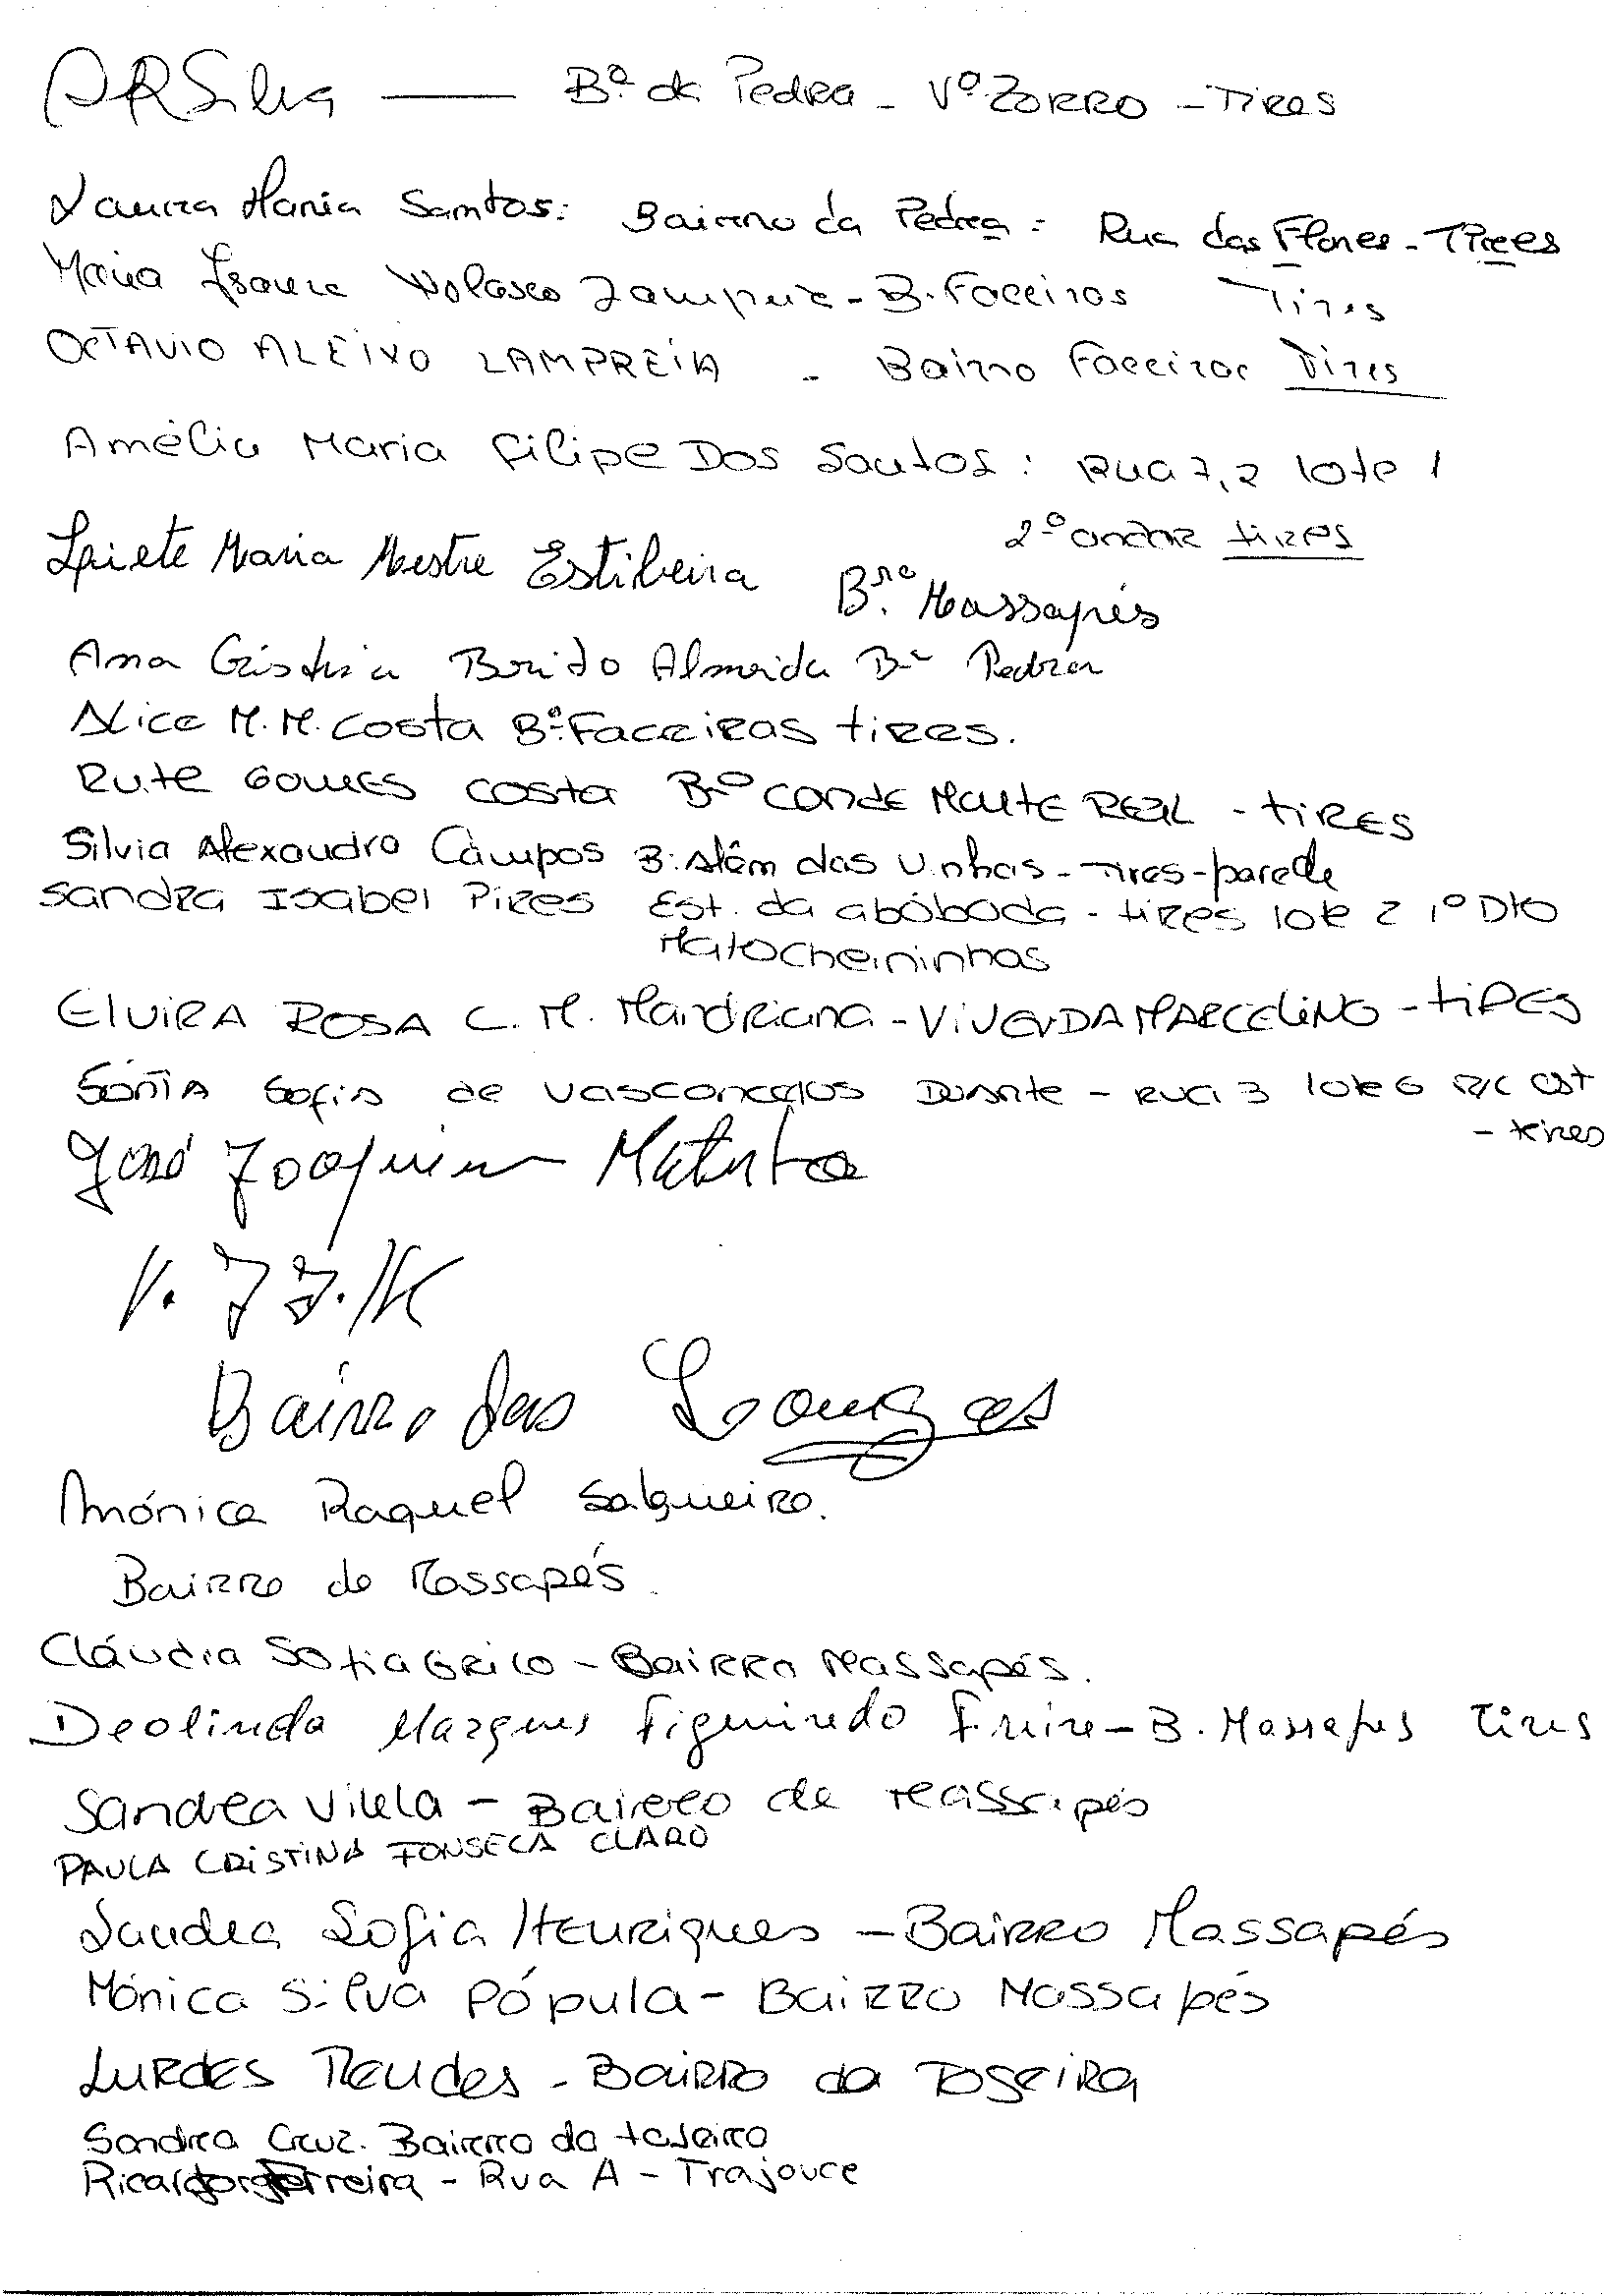 ARSilva — Bº da Pedra - Vª ZORRO - Tires
Laura Maria Santos: Bairro da Pedra: Rua das Flores - Tires
Maria Isaura Nolasco Lampreia - B. Faceiras Tires
OCTAVIO ALEIXO LAMPREIA - Bairro Faceiras Tires
Amélia Maria Filipe Dos Santos: RUA 7, 2 lote 1
2º andar tires
Maria Mestre Estibeira Brro. Massapés
Ana Cristina Brito Almeida Bº Pedra
Alice M.M. Costa Bº: Faceiras tires.
Rute Gomes Costa Bº CONDE Monte REAL - tiRES
Silvia Alexandra Campos B. Além das Vinhas - Tires - parede
Sandra Isabel Pires Est. da abóboda - tires lote 2 1º Dto
Matocheirinhos
ElviRA ROSA C. M. - ViVENDA MARCELINO - tiRES
Sónia Sofia de Vasconcelos Duarte - Rua 3 lote 6 R/C est
- tires
José Joaquim
V. J J. M
Bairro das
Mónica Raquel Salgueiro.
Bairro de Massapés.
Cláudia Sofia Grilo - Bairro Massapés.
Deolinda Marques Figueiredo Freire - B. Massapés Tires
Sandra Vilela - Bairro de Massapés
PAULA CRISTINA FONSECA CLARO
Sandra Sofia Henriques - Bairro Massapés
Mónica Silva Pópula - Bairro Massapés
Lurdes Mendes - Bairro da Toseira
Sandra Cruz. Bairro da toseira
Ricardo Ferreira - Rua A - Trajouce